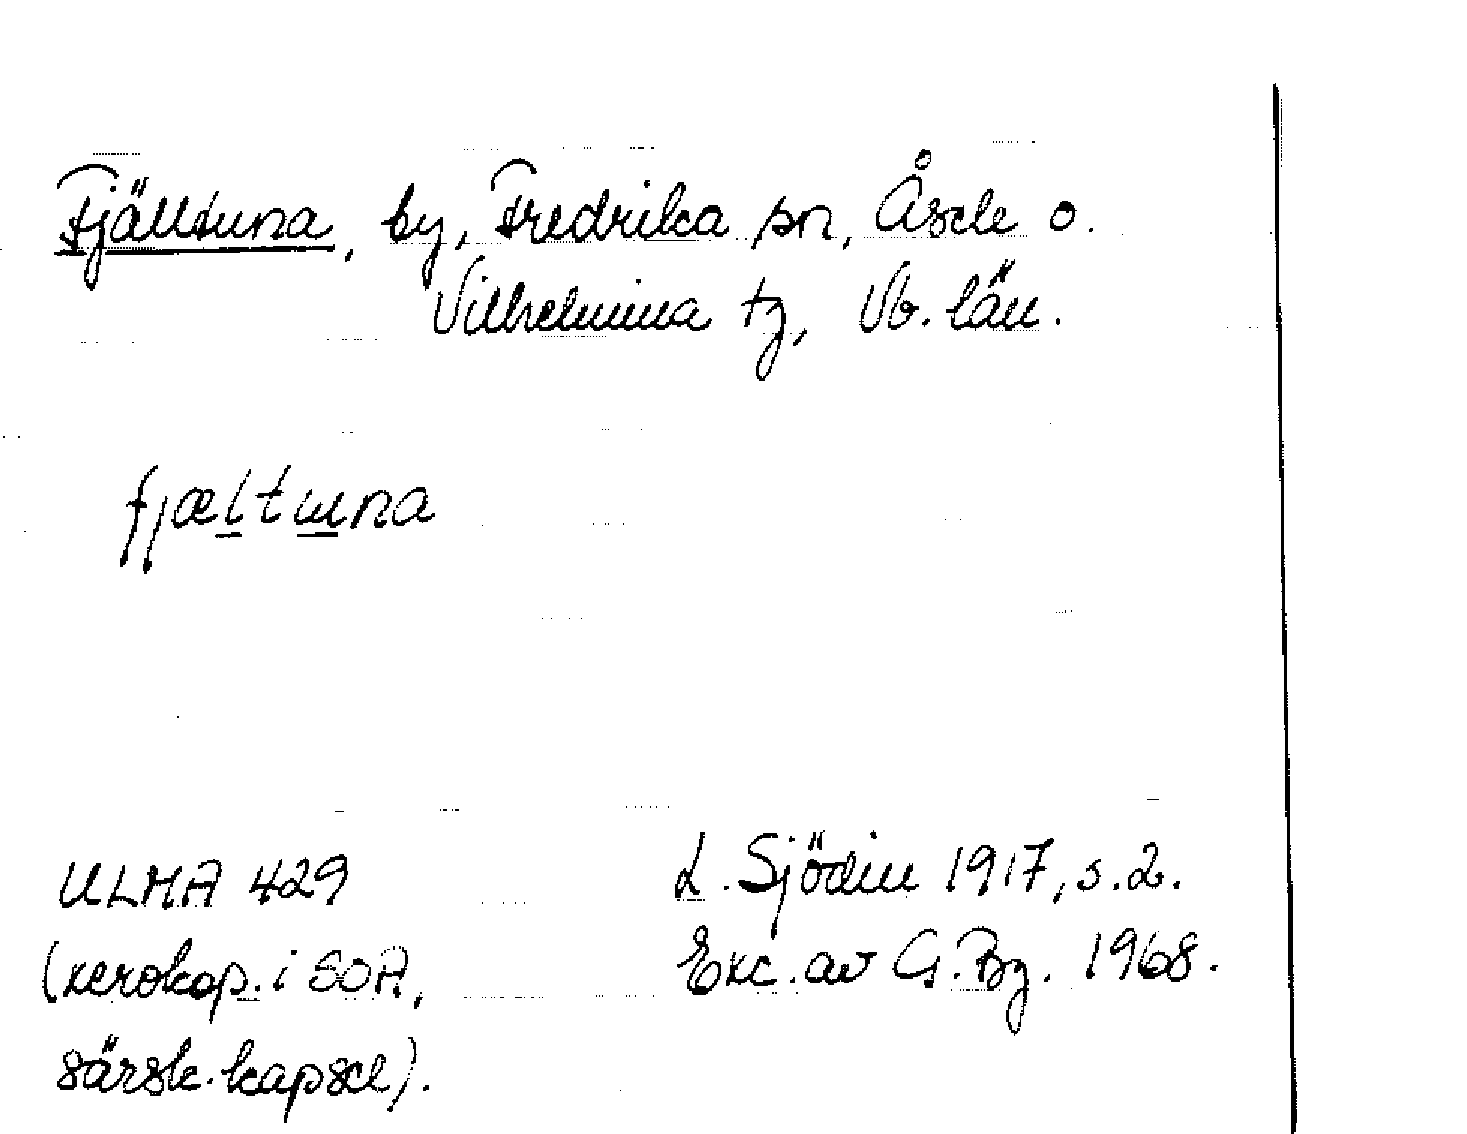 Fjälltuna, by, Fredrika sn, Åsele o.
Vilhelmina tg, Vb. län.
fjæltɯna
ULMA 429
(xerokop. i SOA,
särsk. kapsel).
L. Sjödin 1917, s. 2.
Exc. av G. Bg. 1968.